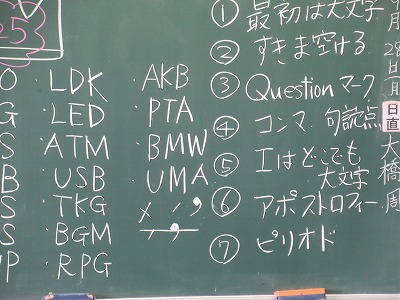 5
O
G
S
B
S
S
P
・LDK
・LED
・ATM
・USB
・TKG
・BGM
・RPG
・AKB
・PTA
・BMW
・UMA
① 最初は大文字
② すきま空ける
③ Question マーク
④ コンマ 句読点
⑤ Iはどこでも
大文字
⑥ アポストロフィー
⑦ ピリオド
月
28
日
日直
大橋
周